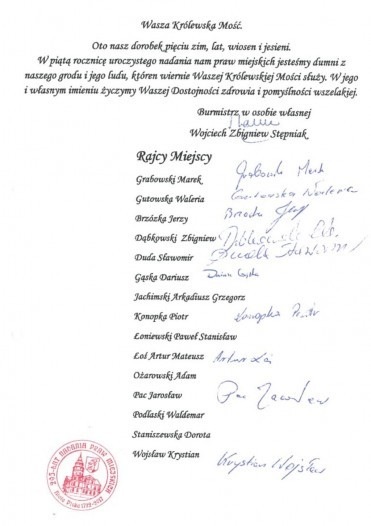 Wasza Królewska Mość.
Oto nasz dorobek pięciu zim, lat, wiosen i jesieni.
W piątą rocznicę uroczystego nadania nam praw miejskich jesteśmy dumni z
naszego grodu i jego ludu, któren wiernie Waszej Królewskiej Mości służy. W jego
i własnym imieniu życzymy Waszej Dostojności zdrowia i pomyślności wszelakiej.
Burmistrz w osobie własnej
Wojciech Zbigniew Stępniak
Rajcy Miejscy
Grabowski Marek Grabowski Marek
Gutowska Waleria Gutowska Waleria
Brzózka Jerzy Brzózka Jerzy
Dąbkowski Zbigniew Dąbkowski Zb.
Duda Sławomir Sławomir
Gąska Dariusz Dariusz Gąska
Jachimski Arkadiusz Grzegorz
Konopka Piotr Konopka Piotr
Łoniewski Paweł Stanisław
Łoś Artur Mateusz Artur Łoś
Ożarowski Adam
Pac Jarosław Pac Jarosław
Podlaski Waldemar
Staniszewska Dorota
Wojsław Krystian Krystian Wojsław
NADANIA PRAW MIEJSKICH